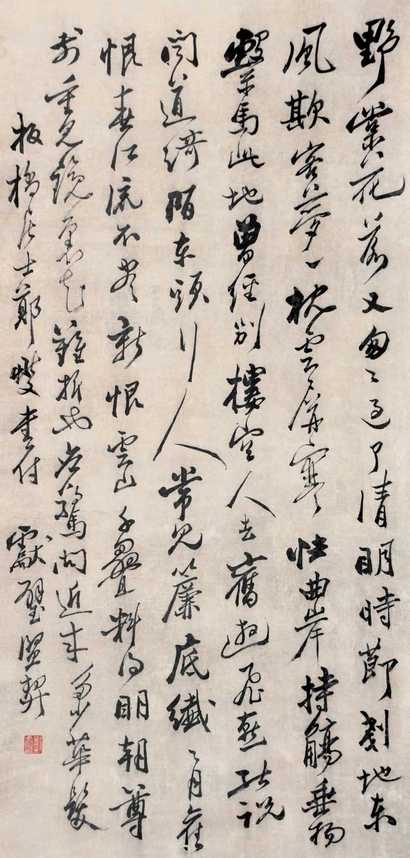 野棠花落又匆〻過了清明時節剗地東
風欺客夢一枕雲屏寒怯曲岸持觴垂楊
繫馬此地曾經別樓空人去舊遊飛燕能說
聞道綺陌東頭行人常見簾底纖〻月舊
恨春江流不盡新恨雲山千疊料得明朝尊
前重見鏡裏花難折也應驚問近來多少華髮
板橋居士鄭燮書付 獻璧賢契